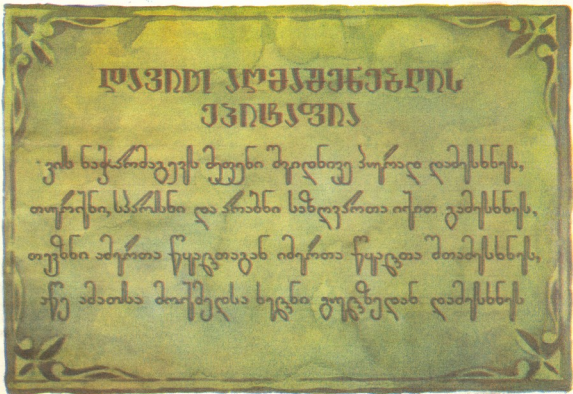 დავით აღმაშენებლის
ეპიტაფია
ვის ნაჭარმაგევს მეფენი შვიდნივე პურად დამესხნეს,
თურქნი, სპარსნი და არაბნი საზღვართა იქით გამესხნეს,
თევზნი ამერთა წყალთაგან იმერთა წყალთა შთამესხნეს,
აწე ამათსა მოქმედსა ხელნი გულზედან დამესხნეს